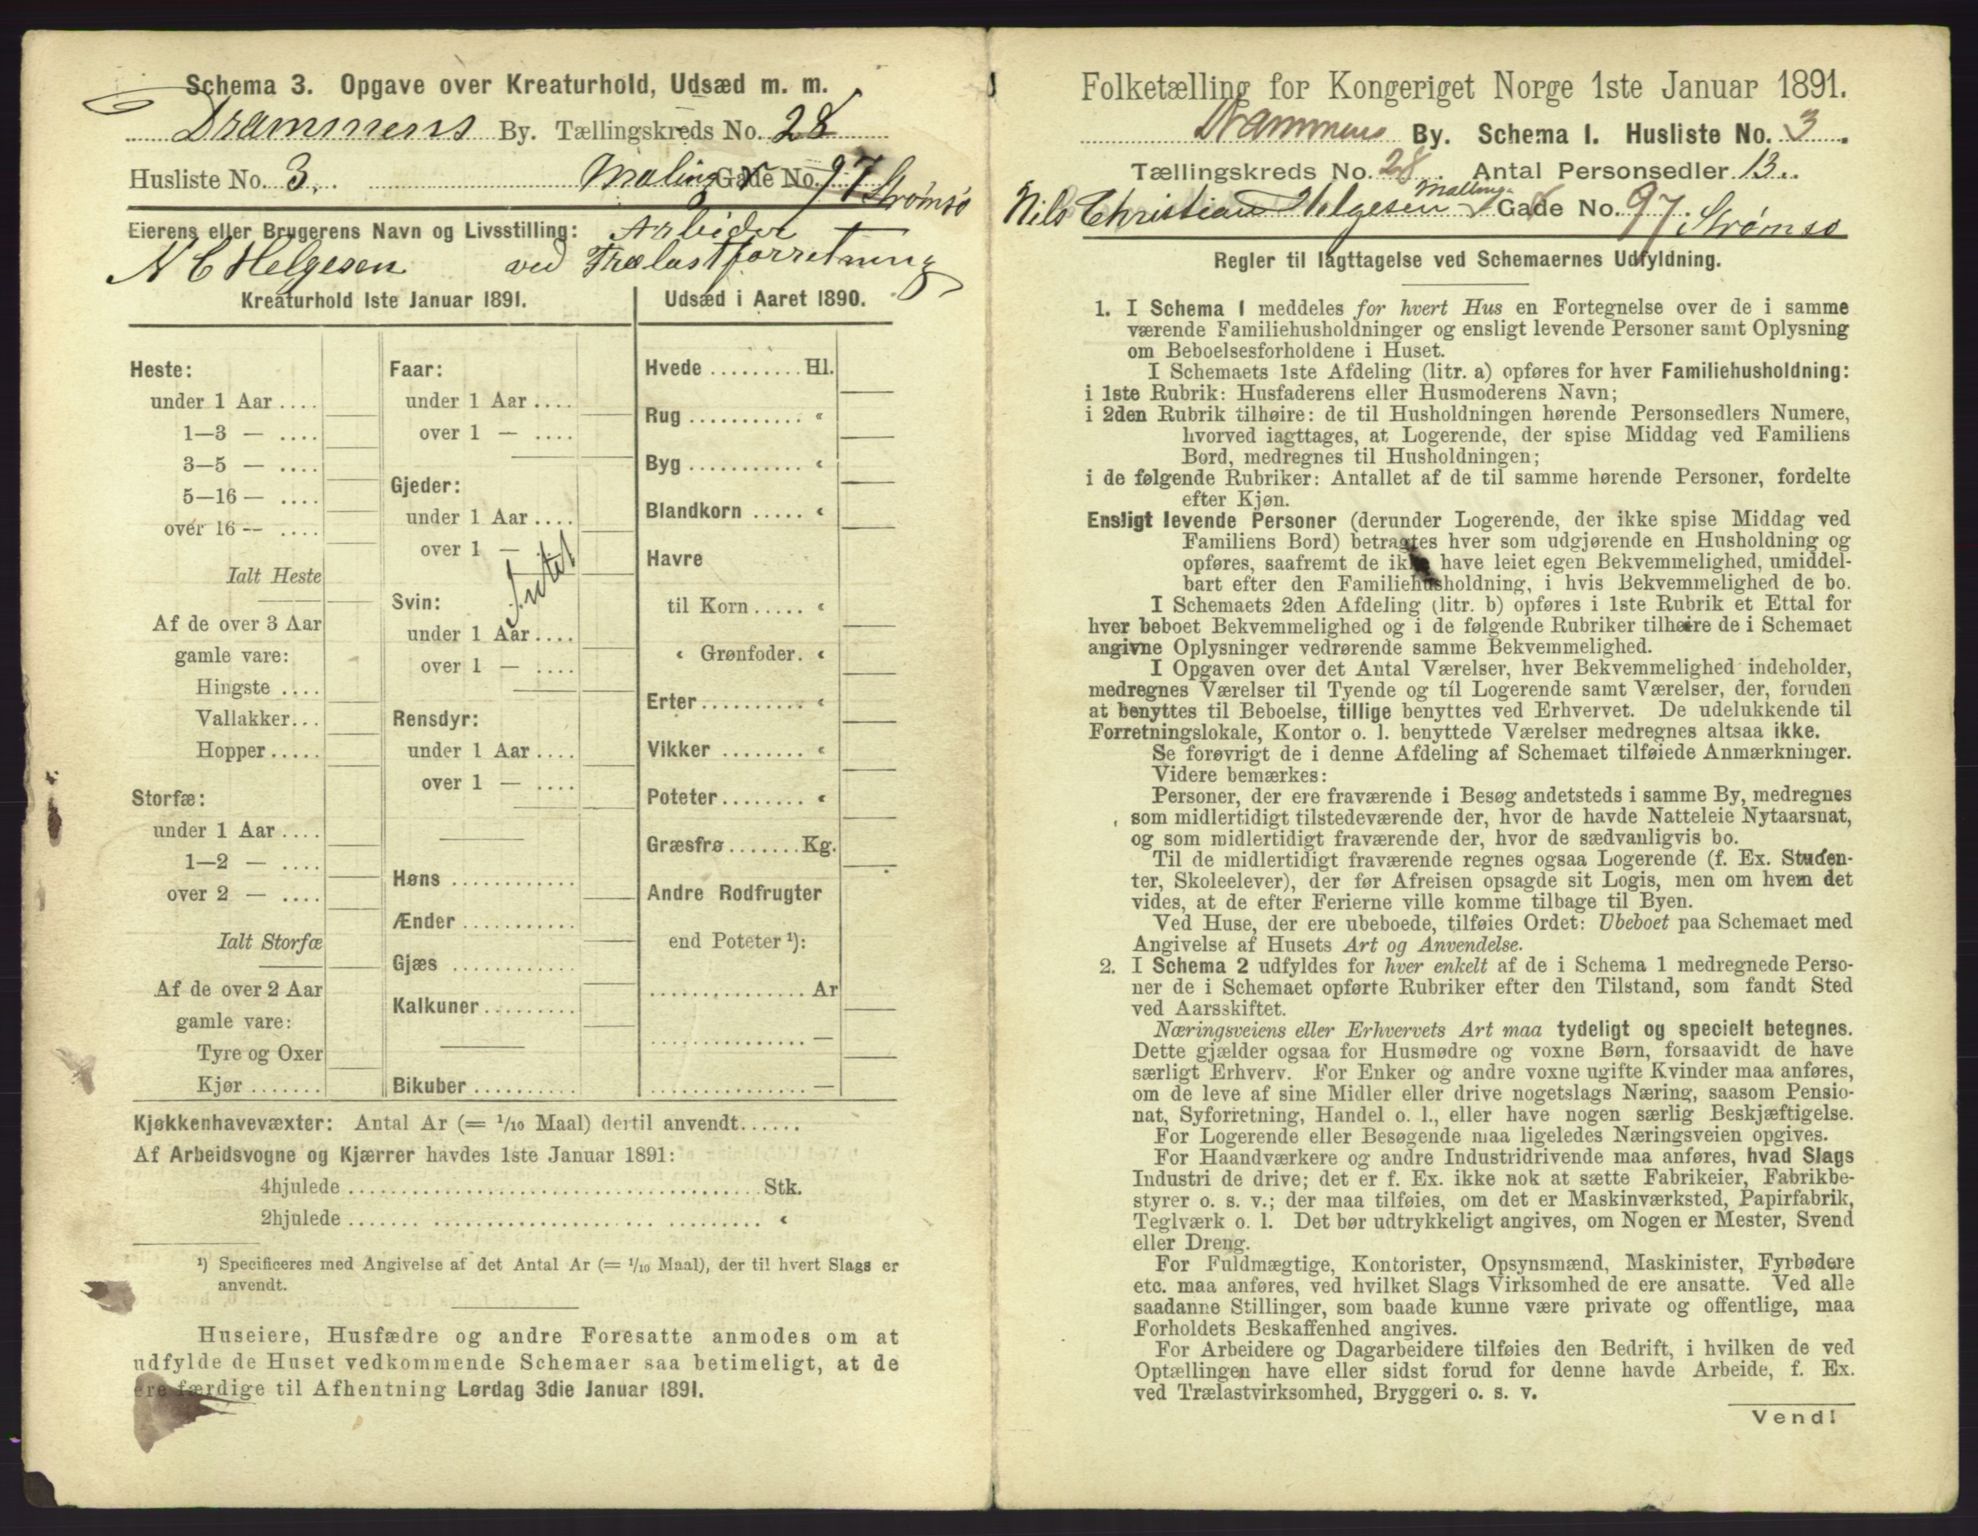 Schema 3. Opgave over Kreaturhold, Udsæd m. m.
Drammens By. Tællingskreds No. 28
Husliste No. 3. Malings Gade No. 97 Strømsø
Eierens eller Brugerens Navn og Livsstilling: Arbeider
N C Helgesen ved Trælastforretning
Kreaturhold 1ste Januar 1891.
Heste:
under 1 Aar....
1—3 — ....
3—5 — ....
5—16 — ....
over 16 — ....
Ialt Heste
Af de over 3 Aar
gamle vare:
Hingste ....
Vallakker...
Hopper.....
Storfæ:
under 1 Aar....
1—2 — ....
over 2 — ....
Ialt Storfæ
Af de over 2 Aar
gamle vare:
Tyre og Oxer
Kjør .......
Faar:
under 1 Aar....
over 1 — ....
Gjeder:
under 1 Aar....
over 1 —
Intet
Svin:
under 1 Aar....
over 1 — ....
Rensdyr:
under 1 Aar....
over 1 — ....
Høns ...........
Ænder ..........
Gjæs ...........
Kalkuner ........
Bikuber .........
Udsæd i Aaret 1890.
Hvede ......... Hl.
Rug ........... «
Byg ........... «
Blandkorn ..... «
Havre
til Korn ..... «
« Grønfoder. «
Erter .......... «
Vikker ......... «
Poteter ........ «
Græsfrø ....... Kg.
Andre Rodfrugter
end Poteter ¹):
............... Ar
............... —
............... —
Kjøkkenhavevæxter: Antal Ar (= 1/10 Maal) dertil anvendt......
Af Arbeidsvogne og Kjærrer havdes 1ste Januar 1891:
4hjulede ....................................... Stk.
2hjulede ....................................... «
¹) Specificeres med Angivelse af det Antal Ar (= 1/10 Maal), der til hvert Slags er
anvendt.
Huseiere, Husfædre og andre Foresatte anmodes om at
udfylde de Huset vedkommende Schemaer saa betimeligt, at de
ere færdige til Afhentning Lørdag 3die Januar 1891.
Folketælling for Kongeriget Norge 1ste Januar 1891.
Drammens By. Schema 1. Husliste No. 3.
Tællingskreds No. 28. Antal Personsedler 13.
Nils Christian Helgesen Mallings Gade No. 97. Strømsø
Regler til Iagttagelse ved Schemaernes Udfyldning.
1. I Schema 1 meddeles for hvert Hus en Fortegnelse over de i samme
værende Familiehusholdninger og ensligt levende Personer samt Oplysning
om Beboelsesforholdene i Huset.
I Schemaets 1ste Afdeling (litr. a) opføres for hver Familiehusholdning:
i 1ste Rubrik: Husfaderens eller Husmoderens Navn;
i 2den Rubrik tilhøire: de til Husholdningen hørende Personsedlers Numere,
hvorved iagttages, at Logerende, der spise Middag ved Familiens
Bord, medregnes til Husholdningen;
i de følgende Rubriker: Antallet af de til samme hørende Personer, fordelte
efter Kjøn.
Ensligt levende Personer (derunder Logerende, der ikke spise Middag ved
Familiens Bord) betragtes hver som udgjørende en Husholdning og
opføres, saafremt de ikke have leiet egen Bekvemmelighed, umiddel-
bart efter den Familiehusholdning, i hvis Bekvemmelighed de bo.
I Schemaets 2den Afdeling (litr. b) opføres i 1ste Rubrik et Ettal for
hver beboet Bekvemmelighed og i de følgende Rubriker tilhøire de i Schemaet
angivne Oplysninger vedrørende samme Bekvemmelighed.
I Opgaven over det Antal Værelser, hver Bekvemmelighed indeholder,
medregnes Værelser til Tyende og til Logerende samt Værelser, der, foruden
at benyttes til Beboelse, tillige benyttes ved Erhvervet. De udelukkende til
Forretningslokale, Kontor o. l. benyttede Værelser medregnes altsaa ikke.
Se forøvrigt de i denne Afdeling af Schemaet tilføiede Anmærkninger.
Videre bemærkes:
Personer, der ere fraværende i Besøg andetsteds i samme By, medregnes
som midlertidigt tilstedeværende der, hvor de havde Natteleie Nytaarsnat,
og som midlertidigt fraværende der, hvor de sædvanligvis bo.
Til de midlertidigt fraværende regnes ogsaa Logerende (f. Ex. Studen-
ter, Skoleelever), der før Afreisen opsagde sit Logis, men om hvem det
vides, at de efter Ferierne ville komme tilbage til Byen.
Ved Huse, der ere ubeboede, tilføies Ordet: Ubeboet paa Schemaet med
Angivelse af Husets Art og Anvendelse.
2. I Schema 2 udfyldes for hver enkelt af de i Schema 1 medregnede Perso-
ner de i Schemaet opførte Rubriker efter den Tilstand, som fandt Sted
ved Aarsskiftet.
Næringsveiens eller Erhvervets Art maa tydeligt og specielt betegnes.
Dette gjælder ogsaa for Husmødre og voxne Børn, forsaavidt de have
særligt Erhverv. For Enker og andre voxne ugifte Kvinder maa anføres,
om de leve af sine Midler eller drive nogetslags Næring, saasom Pensio-
nat, Syforretning, Handel o. l., eller have nogen særlig Beskjæftigelse.
For Logerende eller Besøgende maa ligeledes Næringsveien opgives.
For Haandværkere og andre Industridrivende maa anføres, hvad Slags
Industri de drive; det er f. Ex. ikke nok at sætte Fabrikeier, Fabrikbe-
styrer o. s. v.; der maa tilføies, om det er Maskinværksted, Papirfabrik,
Teglværk o. l. Det bør udtrykkeligt angives, om Nogen er Mester, Svend
eller Dreng.
For Fuldmægtige, Kontorister, Opsynsmænd, Maskinister, Fyrbødere
etc. maa anføres, ved hvilket Slags Virksomhed de ere ansatte. Ved alle
saadanne Stillinger, som baade kunne være private og offentlige, maa
Forholdets Beskaffenhed angives.
For Arbeidere og Dagarbeidere tilføies den Bedrift, i hvilken de ved
Optællingen have eller sidst forud for denne havde Arbeide, f. Ex.
ved Trælastvirksomhed, Bryggeri o. s. v.
Vend!